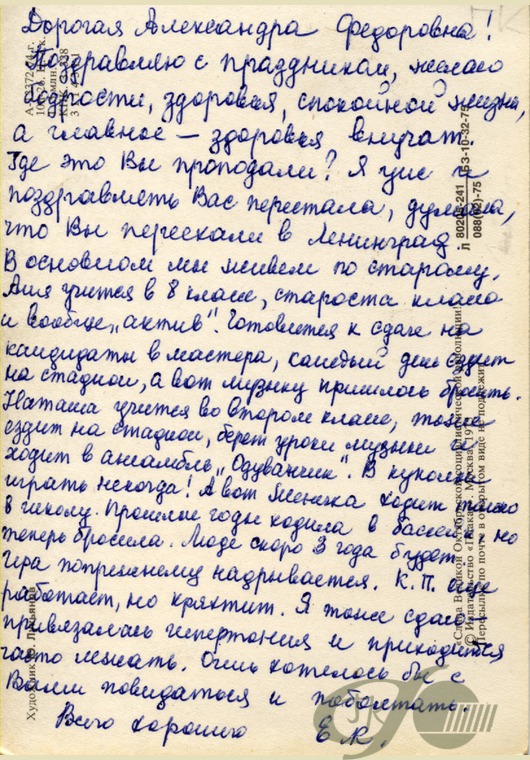 Дорогая Александра Федоровна!
Поздравляю с праздником, желаю
бодрости, здоровья, спокойной жизни,
а главное – здоровья внучат.
Где это Вы пропали? Я уже и
поздравлять Вас перестала, думала,
что Вы переехали в Ленинград
В основном мы живем по старому.
Аля учится в 8 классе, староста класса
и вообще „актив". Готовится к сдаче на
кандидаты в мастера, каждый день ездит
на стадион, а вот музыку пришлось бросить.
Наташа учится во втором классе, тоже
ездит на стадион, берет уроки музыки и
ходит в ансамбль „Одуванчик". В куколки
играть некогда! А вот ходит только
в школу. Прошлые годы ходила в бассейн, но
теперь бросила. Люде скоро 3 года будет.
попрежнему надрывается. К.П. еще
работает, но кряхтит. Я тоже сдаю,
привязалась гипертония и приходится
часто лежать. Очень хотелось бы с
Вами повидаться и поболтать.
Всего хорошего Е.К.
Л 80205-241 БЗ-10-32-75
088(02)-75
«Слава Великой Октябрьской социалистической революции!»
© Издательство «Плакат». Москва.
Пересылать по почте в открытом виде не подлежит
Художник Ю. Лукьянов
ПК